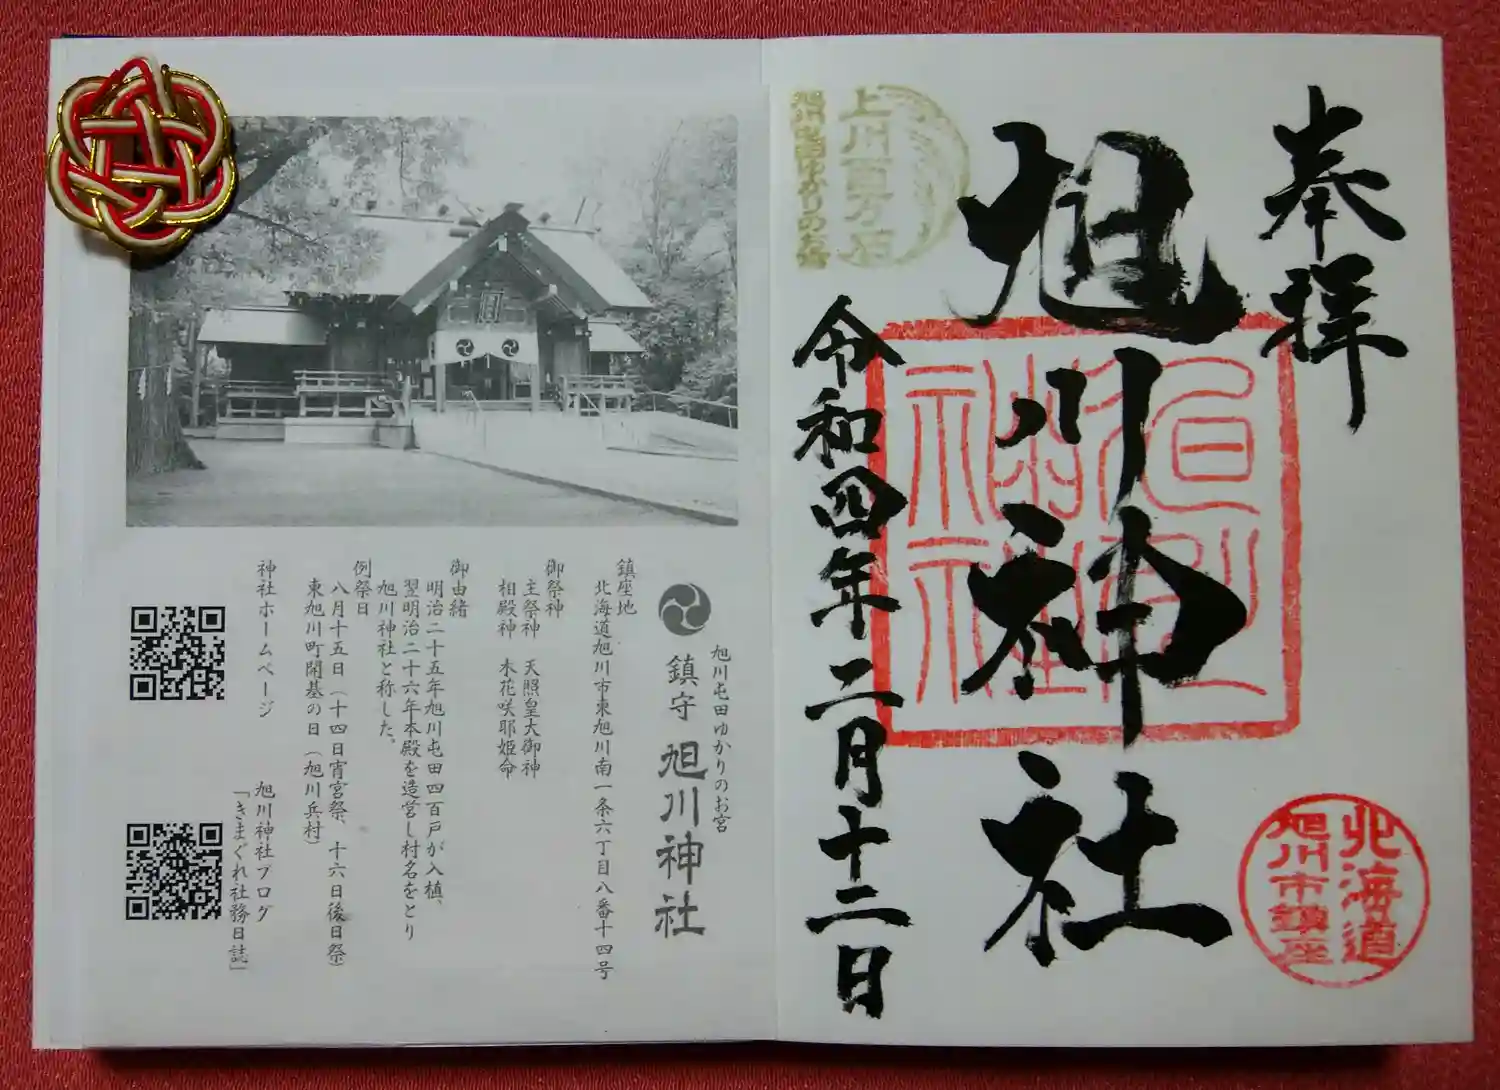 奉拝
旭川神社
令和四年二月十二日
旭川神社
北海道
旭川市鎮座
上川百万石
旭川屯田ゆかりのお宮
旭川屯田ゆかりのお宮
鎮守 旭川神社
鎮座地
北海道旭川市東旭川南一条六丁目八番十四号
御祭神
主祭神 天照皇大御神
相殿神 木花咲耶姫命
御由緒
明治二十五年旭川屯田四百戸が入植、
翌明治二十六年本殿を造営し村名をとり
旭川神社と称した。
例祭日
八月十五日(十四日宵宮祭、十六日後日祭)
東旭川町開基の日(旭川兵村)
神社ホームページ
旭川神社ブログ
「きまぐれ社務日誌」